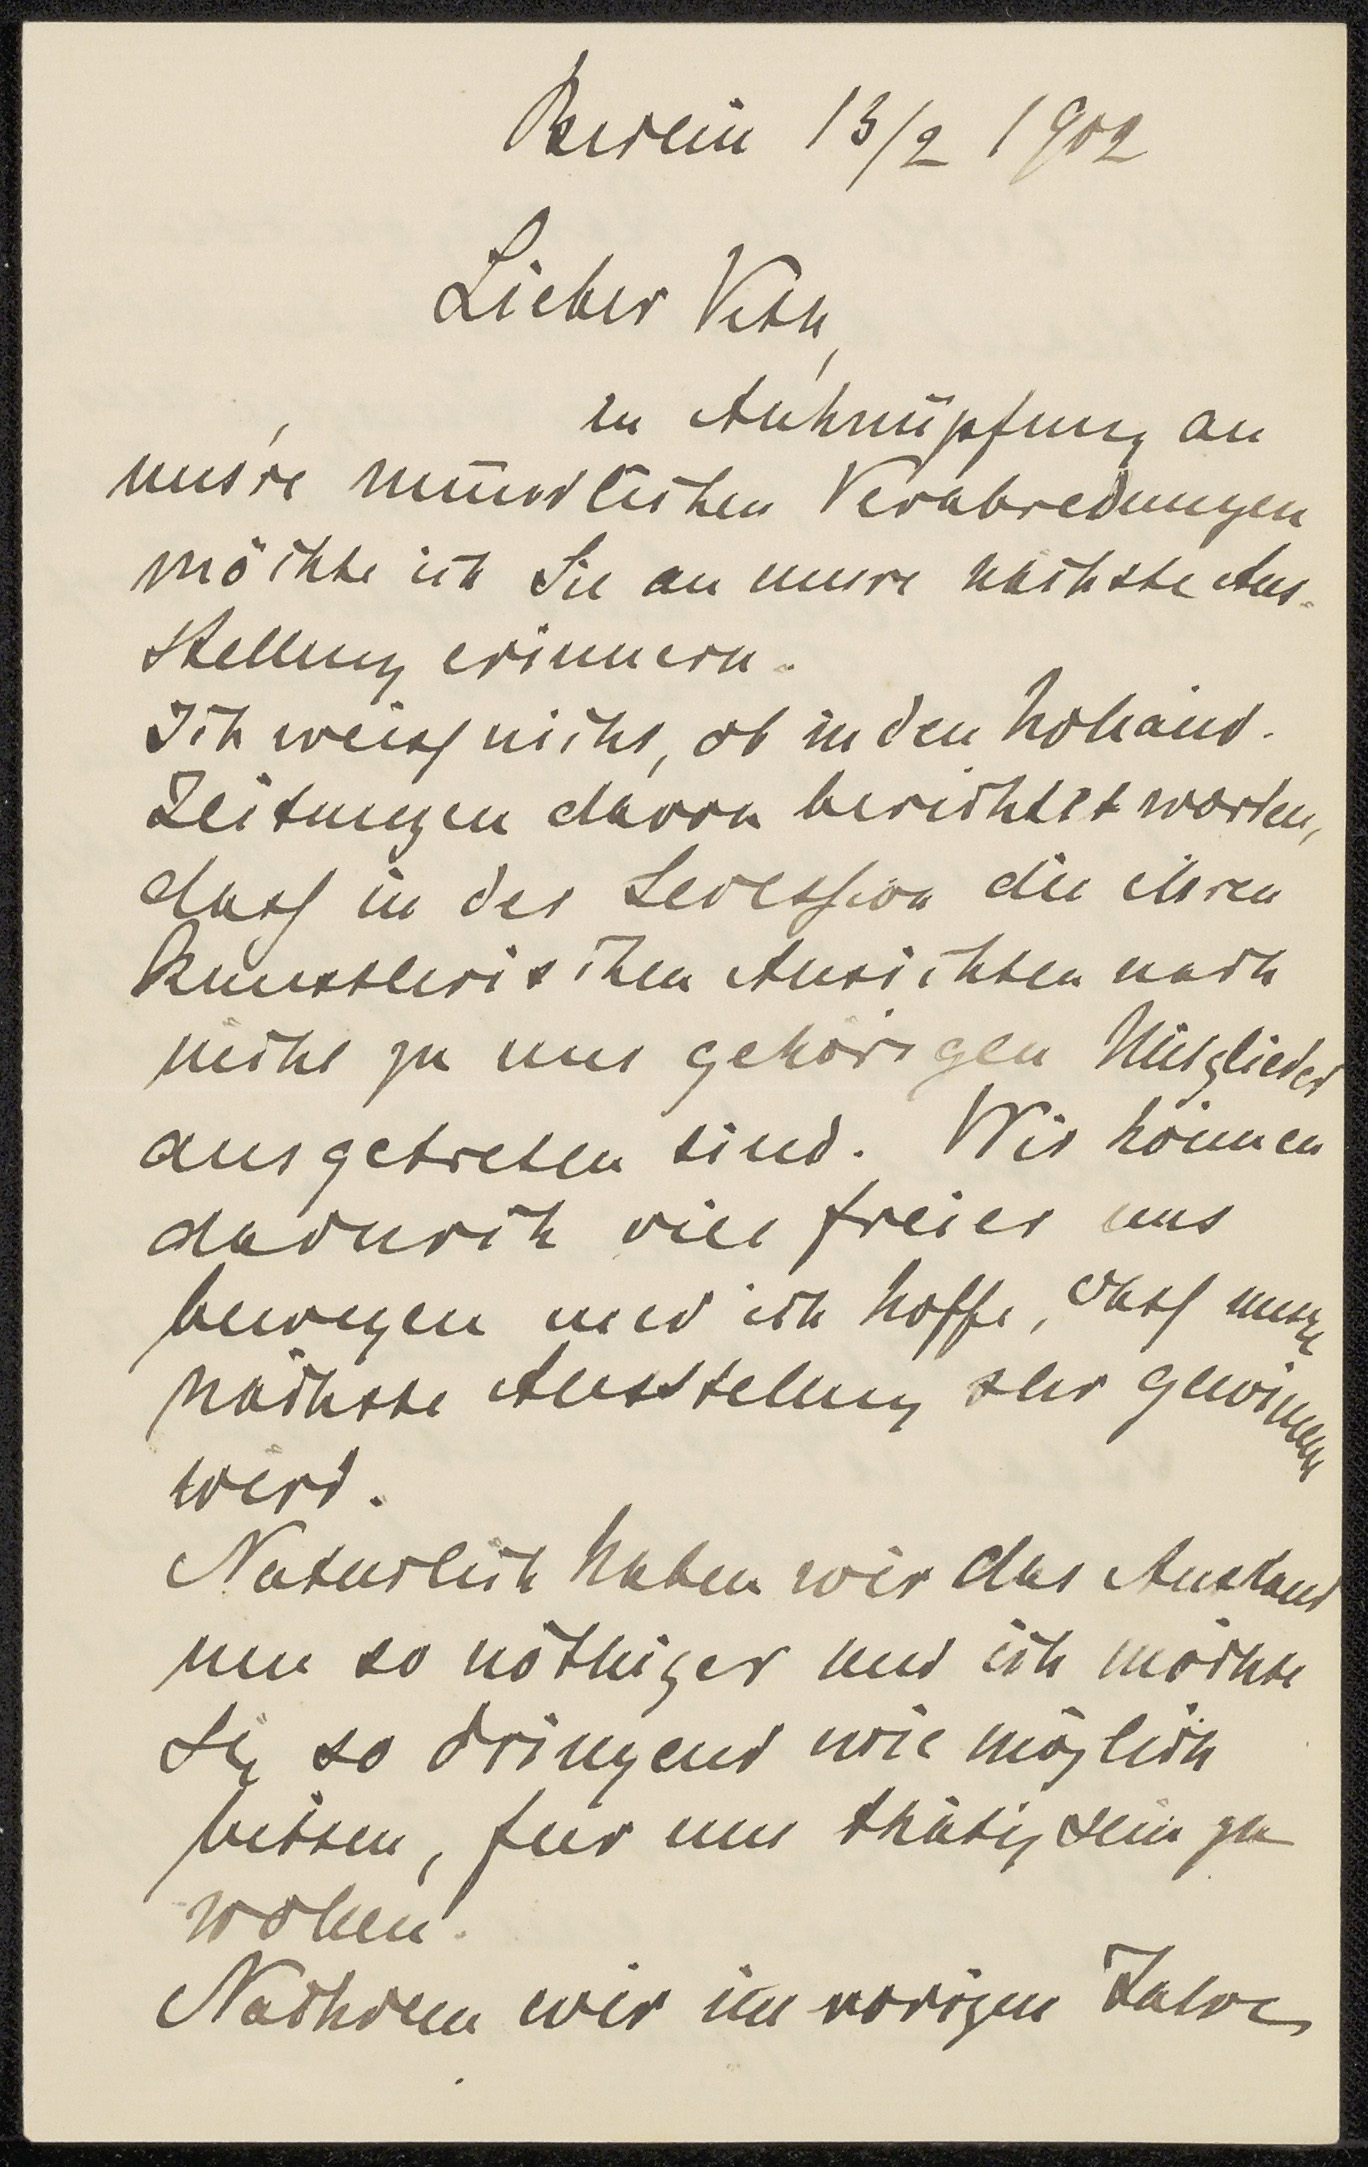 Berlin 13/2 1902
Lieber Veth,
in Anknüpfung an
uns're mündlichen Verabredungen
möchte ich Sie an unsre nächste Aus-
stellung erinnern.
Ich weiss nicht, ob in den holländ.
Zeitungen davon berichtet worden,
dass in der Secession die ihren
künstlerischen Ansichten nach
nicht zu uns gehörigen Mitglieder
ausgetreten sind. Wir können
dadurch viel freier uns
bewegen und ich hoffe, dass unsre
nächste Ausstellung sehr gewinnen
wird.
Natürlich haben wir das Ausland
um so nöthiger und ich möchte
Sie so dringend wie möglich
bitten, für uns thätig sein zu
wollen.
Nachdem wir im vorigen Jahre